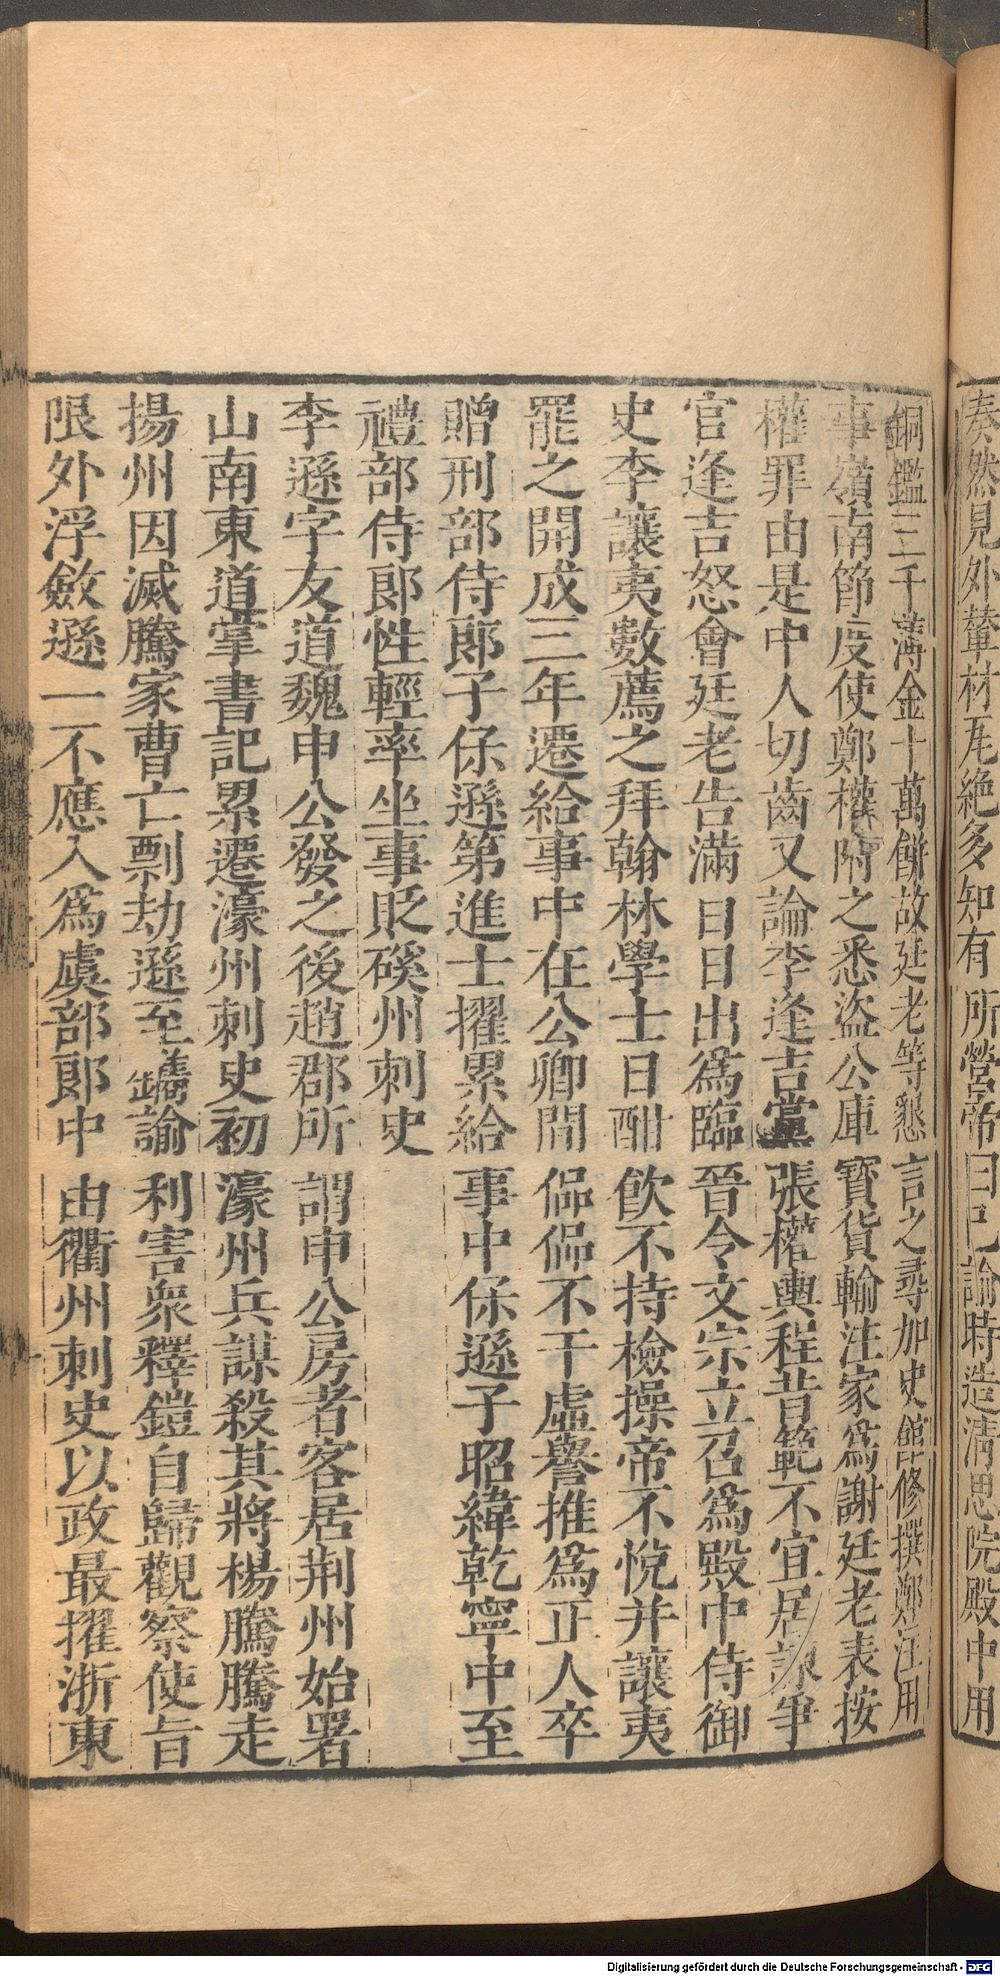 奏然見外輦材瓦絶多知有所營帝曰已諭時造清思院殿中用
銅鑑三千薄金十萬餅故廷老等懇言之尋加史館修撰鄭注用
事嶺南節度使鄭權附之悉盜公庫寶貨輸注家爲謝廷老表按
權罪由是中人切齒又論李逢吉黨張權輿程昔範不宜居諫爭
官逢吉怒會廷老告滿日日出爲臨晉令文宗立召爲殿中侍御
史李讓夷數薦之拜翰林學士日酣飮不持檢操帝不悅并讓夷
罷之開成三年遷給事中在公卿間侃侃不干虛譽推爲正人卒
贈刑部侍郎子保遜第進士擢累給事中保遜子昭緯乾寧中至
禮部侍郎性輕率坐事貶磎州刺史
李遜字友道魏申公發之後趙郡所謂申公房者客居荆州始署
山南東道掌書記累遷濠州刺史初濠州兵謀殺其將楊騰騰走
揚州因滅騰家曹亡剽劫遜至鐫諭利害衆釋鎧自歸觀察使旨
限外浮斂遜一不應入爲虞部郎中由衢州刺史以政最擢浙東
Digitalisierung gefördert durch die Deutsche Forschungsgemeinschaft - DFG